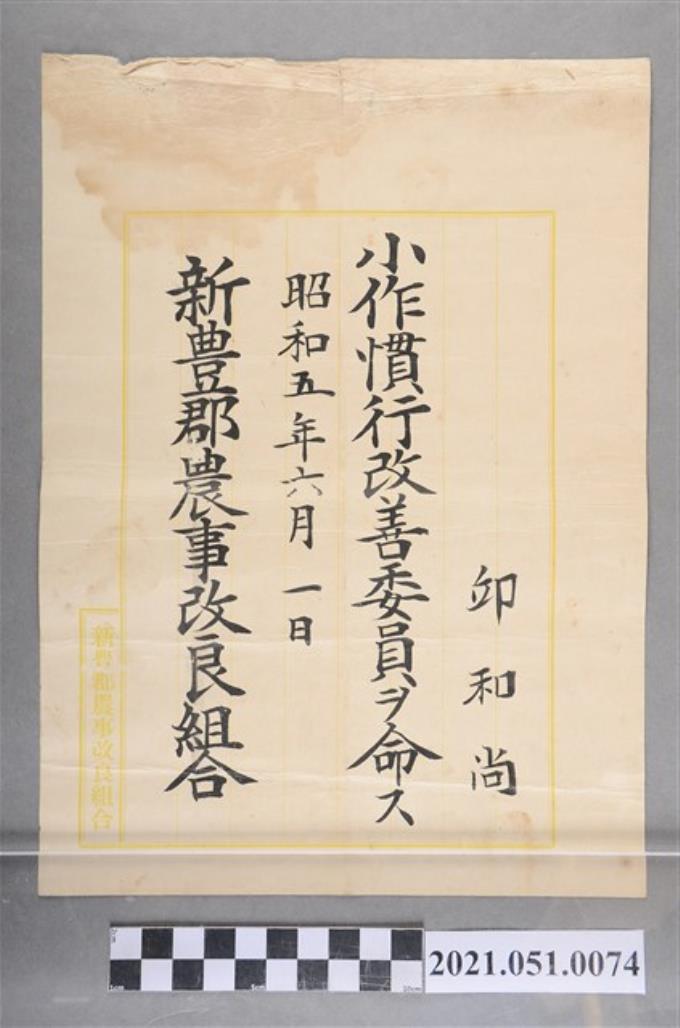 卯和尚
小作慣行改善委員ヲ命ス
昭和五年六月一日
新豊郡農事改良組合
新豊郡農事改良組合
2021.051.0074